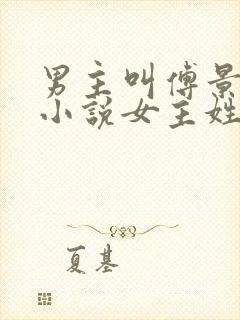 男主叫傅景
小说女主姓
夏基